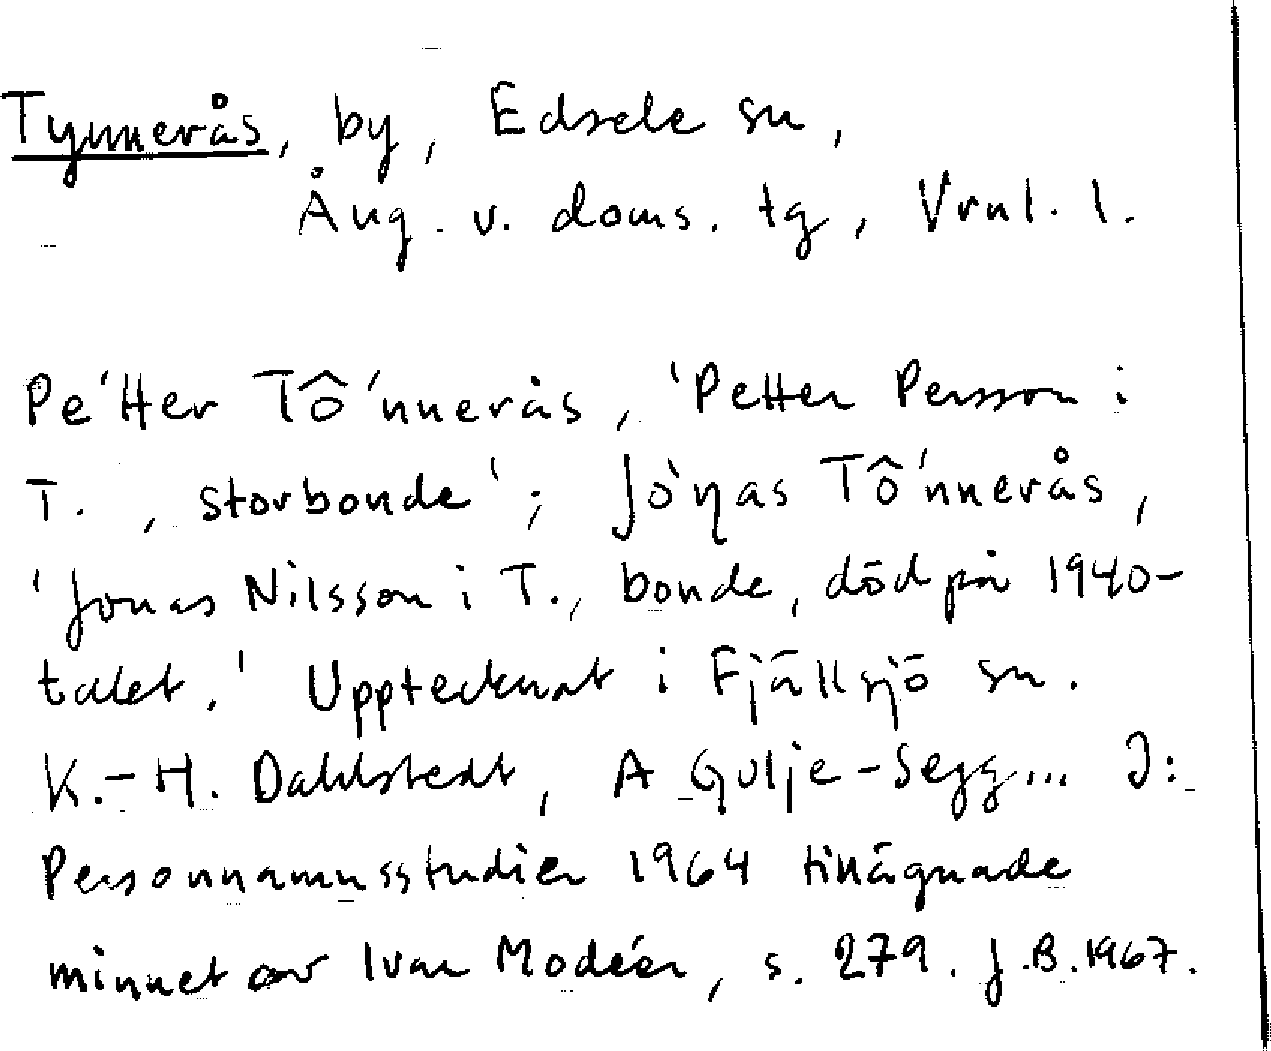 Tynnerås, by, Edsele sn,
Ång. v. doms. tg, Vrnl. l.
Pe´tter Tô´nnerås, 'Petter Persson i
T., storbonde'; Jò`ŋas Tô´nnerås,
'Jonas Nilsson i T., bonde, död på 1940-
talet.' Upptecknat i Fjällsjö sn.
K.-H. Dahlstedt, A Gulje-Segg... I:
Personnamnsstudier 1964 tillägnade
minnet av Ivar Modéer, s. 279. J.B. 1967.